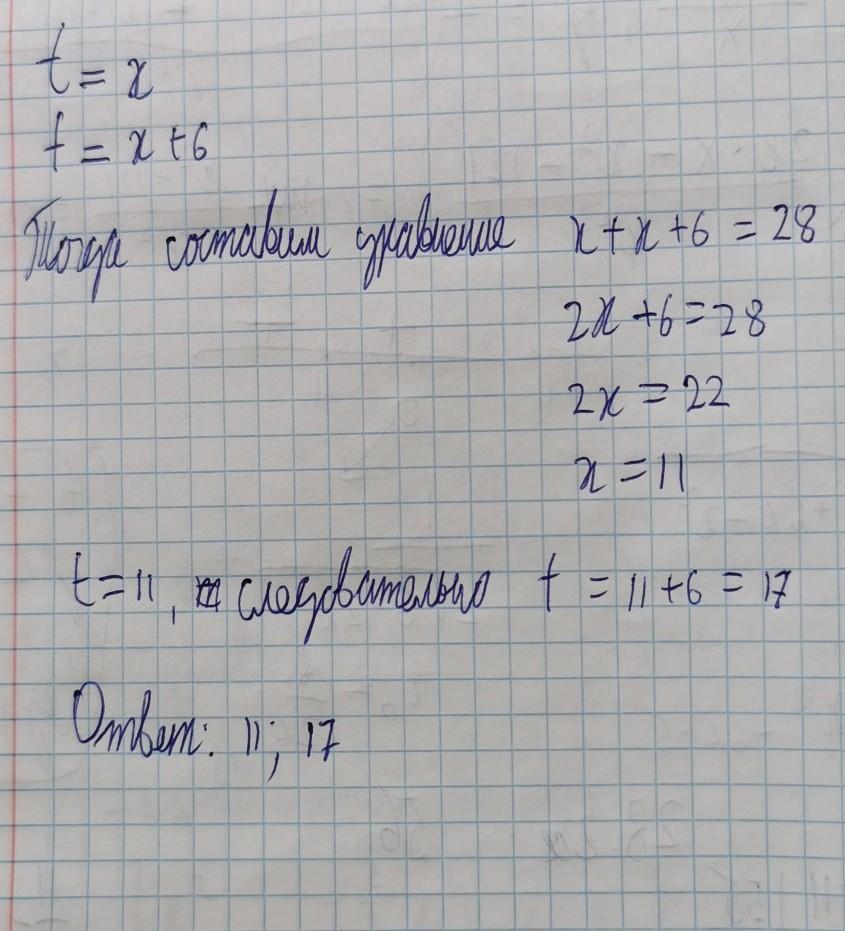 t = x
t = x + 6
Тогда составим уравнение x + x + 6 = 28
2x + 6 = 28
2x = 22
x = 11
t = 11, следовательно t = 11 + 6 = 17
Ответ: 11; 17